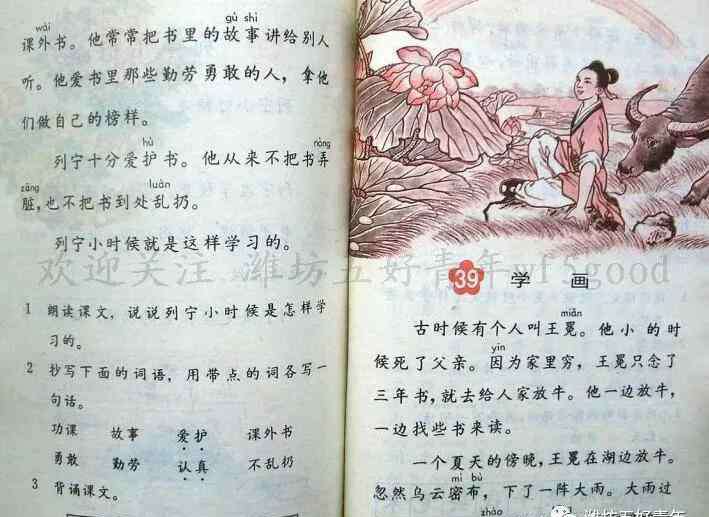 wài gù shi
课外书。他常常把书里的故事讲给别人
听。他爱书里那些勤劳勇敢的人，拿他
们做自己的榜样。
hù ròng
列宁十分爱护书。他从来不把书弄
zāng luàn
脏，也不把书到处乱扔。
列宁小时候就是这样学习的。
1 朗读课文，说说列宁小时候是怎样学
习的。
2 抄写下面的词语，用带点的词各写一
句话。
功课 故事 爱护 课外书
勇敢 勤劳 认真 不乱扔
3 背诵课文。
39 学画
miǎn
古时候有个人叫王冕。他小的时
yīn
候死了父亲。因为家里穷，王冕只念了
三年书，就去给人家放牛。他一边放牛，
一边找些书来读。
一个夏天的傍晚，王冕在湖边放牛。
mì bù
忽然乌云密布，下了一阵大雨。大雨过
zhào
欢迎关注 潍坊五好青年wf5good
潍坊五好青年